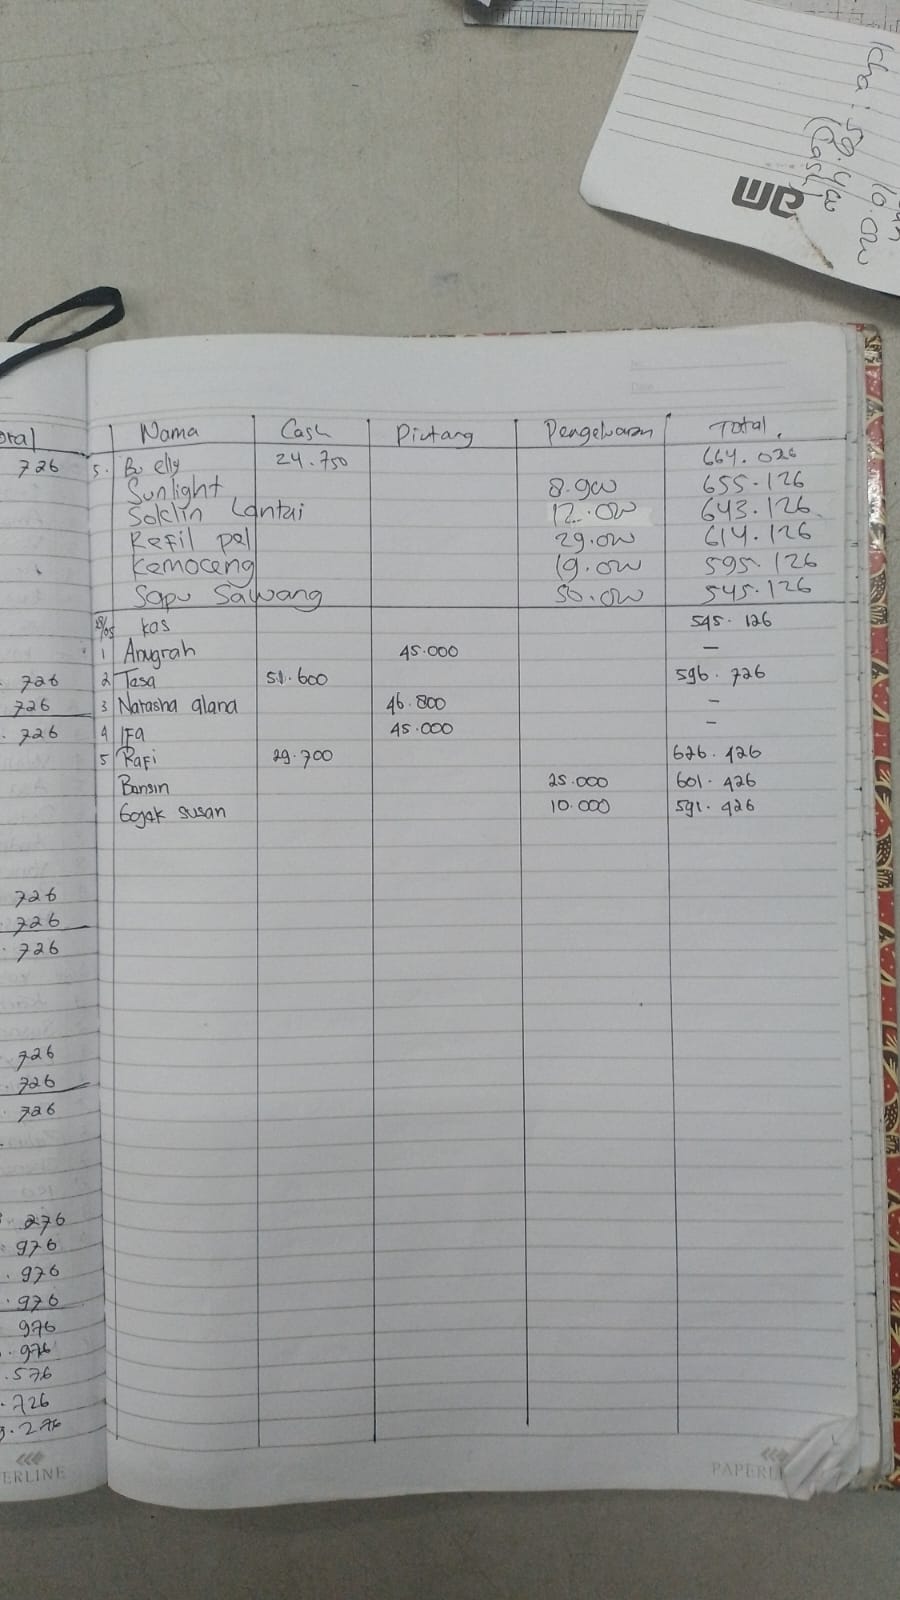 Icha : 59.400
10.000
(Cash)
Nama Cash Piutang Pengeluaran Total
726 5. Bu elly 24.750 664.026
Sunlight 8.900 655.126
Soklin Lantai 12.000 643.126
Refil pel 29.000 614.126
Kemoceng 19.000 595.126
Sapu Sawang 50.000 545.126
kas 545.126
1 Anugrah 45.000 —
726 2 Tasa 51.600 596.726
726 3 Natasha alana 46.800 —
726 4 Ifa 45.000 —
5 Rafi 29.700 626.426
Bensin 25.000 601.426
Gojek susan 10.000 591.426
726
726
726
726
726
726
276
976
976
976
976
976
576
726
276
PAPERLINE